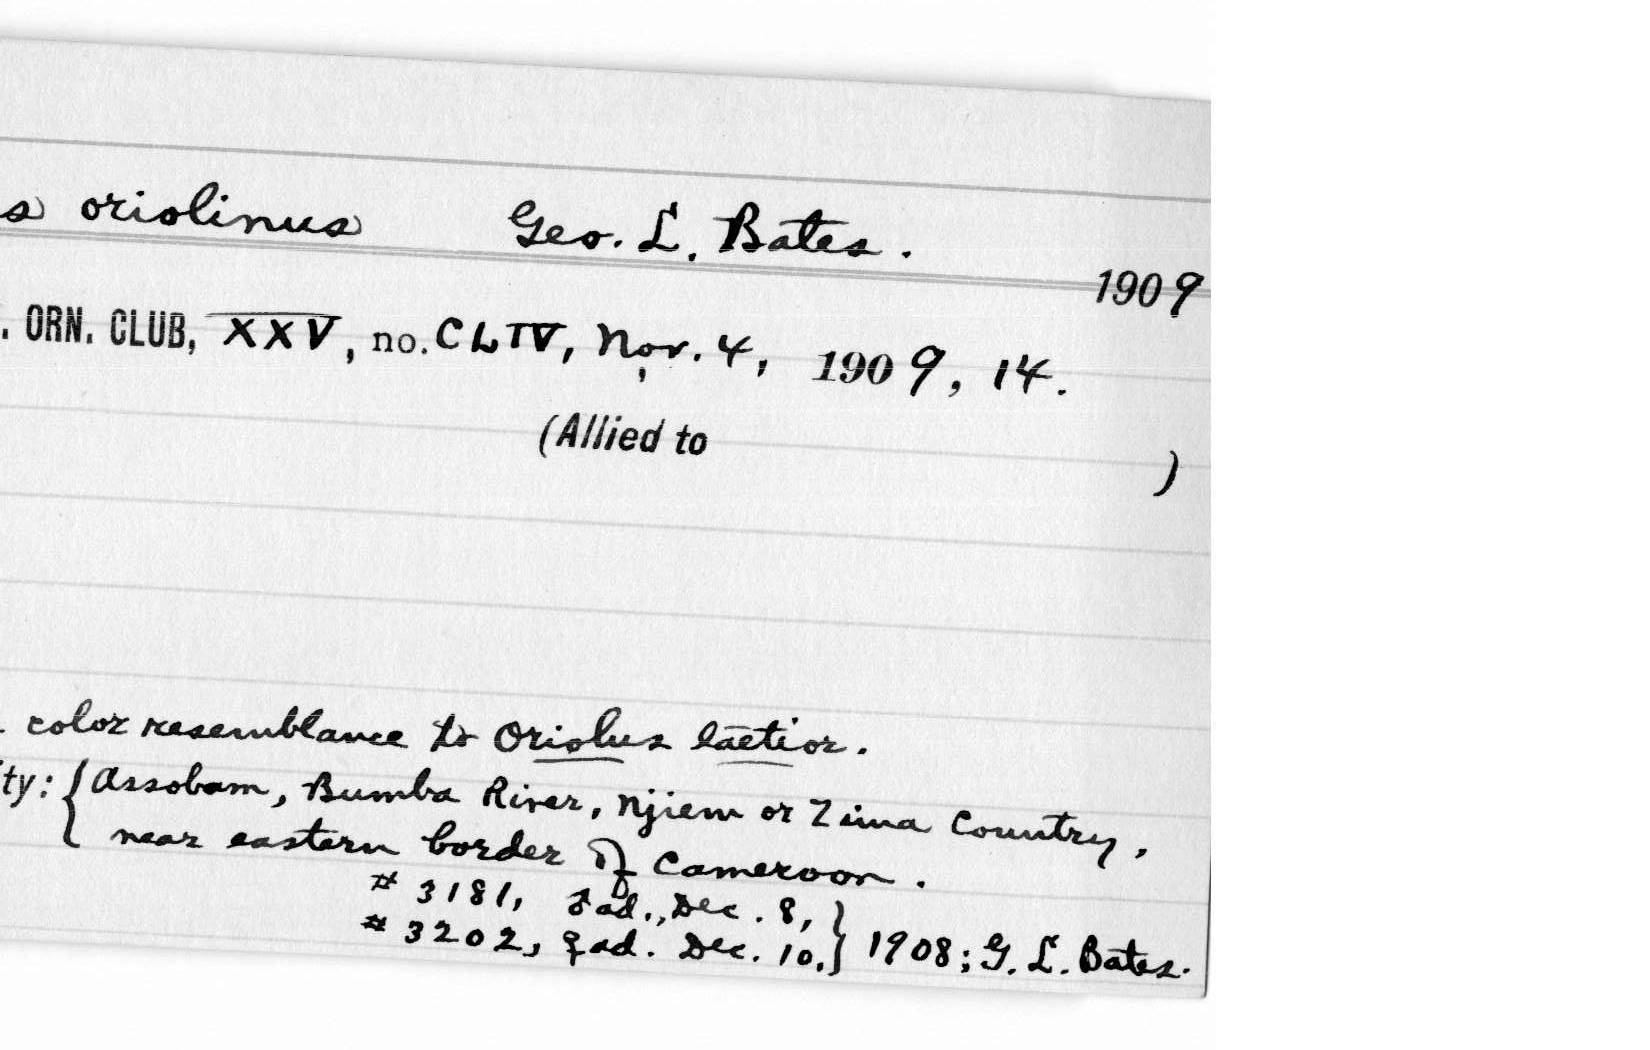 s oriolinus Geo. L. Bates.
1909
. ORN. CLUB, XXV, no. CLIV, Nov. 4, 1909, 14.
(Allied to )
color resemblance to Oriolus laetior.
ity: { Assobam, Bumba River, Njiem or Zima Country,
near eastern border of Cameroon.
# 3181, ♂ ad., Dec. 8, }
# 3202, ♀ ad. Dec. 10, } 1908; G. L. Bates.